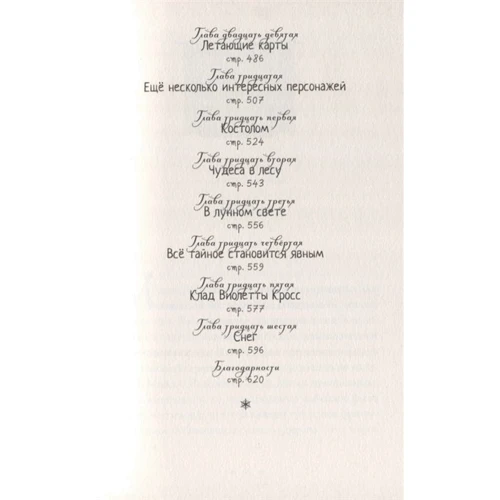 Глава двадцать девятая
Летающие карты
стр. 486
Глава тридцатая
Ещё несколько интересных персонажей
стр. 507
Глава тридцать первая
Костолом
стр. 524
Глава тридцать вторая
Чудеса в лесу
стр. 543
Глава тридцать третья
В лунном свете
стр. 556
Глава тридцать четвёртая
Всё тайное становится явным
стр. 559
Глава тридцать пятая
Клад Виолетты Кросс
стр. 577
Глава тридцать шестая
Снег
стр. 596
Благодарности
стр. 620